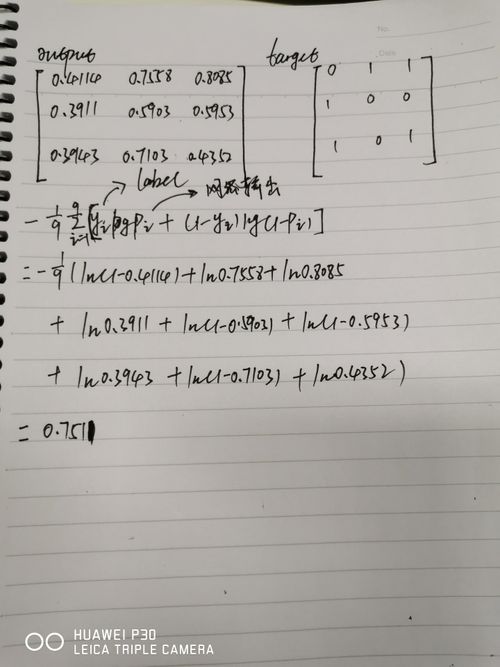 output target
0.4114 0.7558 0.8085 0 1 1
0.3911 0.5903 0.5953 1 0 0
0.3943 0.7103 0.4352 1 0 1
label 网络输出
-1/9 Σ_{i=1}^{9} [y_i log p_i + (1-y_i) log(1-p_i)]
= -1/9 (ln(1-0.4114) + ln0.7558 + ln0.8085
+ ln0.3911 + ln(1-0.5903) + ln(1-0.5953)
+ ln0.3943 + ln(1-0.7103) + ln0.4352)
= 0.7511
No.
Date
HUAWEI P30
LEICA TRIPLE CAMERA